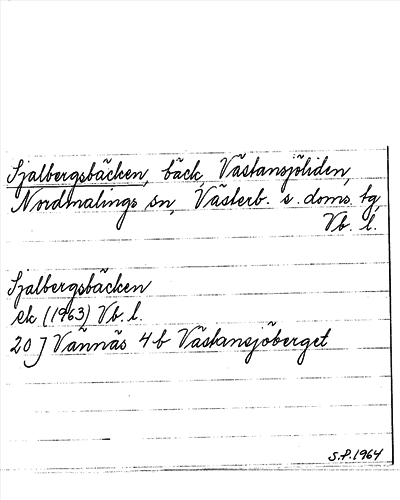 Sjalbergsbäcken, bäck, Västansjöliden,
Nordmalings sn, Västerb. s. doms. tg,
Vb. l.
Sjalbergsbäcken
ek (1963) Vb. l.
20 J Vännäs 4b Västansjöberget
S.P. 1964